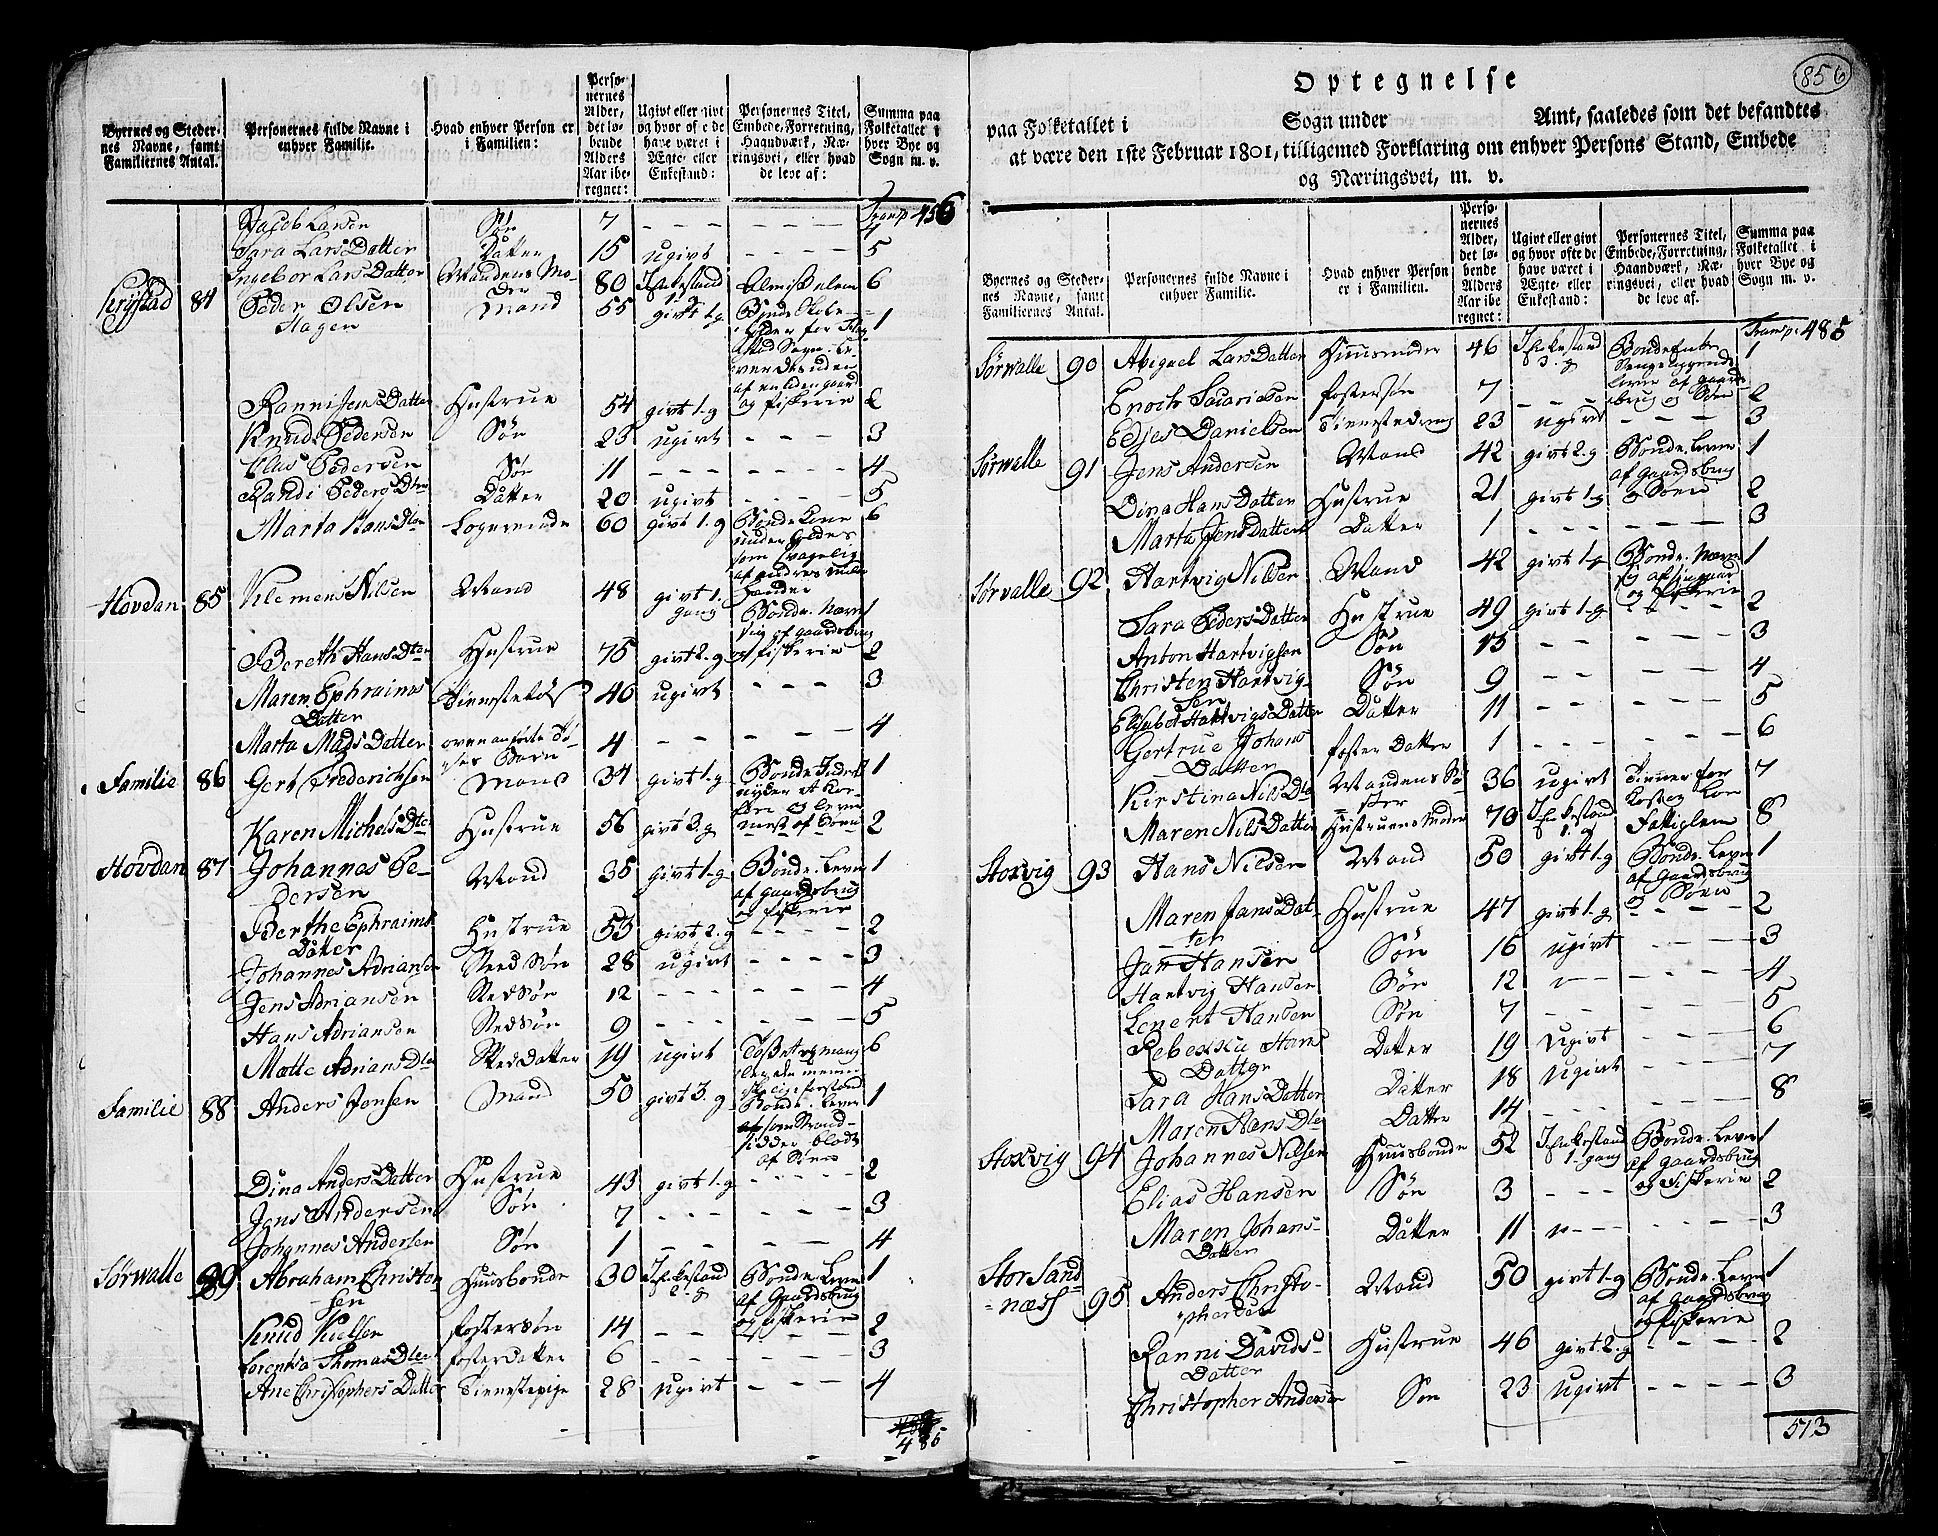 Byernes og Steder-
nes Navne, samt
Familiernes Antal.
Personernes fulde Navne i
enhver Familie.
Hvad enhver Person er
i Familien:
Perso-
nernes
Alder,
det lø-
bende
Alders
Aar ibe-
regnet:
Ugivt eller givt
og hvor ofte de
have været i
Ægte- eller
Enkestand:
Personernes Titel,
Embede, Forretning,
Haandværk, Næ-
ringsvei, eller hvad
de leve af:
Summa paa
Folketallet i
hver Bye og
Sogn m. v.
Transp 456
Jacob Larsen Søn 7 - - - 4
Sara Lars Datter Datter 15 ugivt - - - 5
Ingebor Lars Datter Mandens Mo-
der 80 Enkestand Almisselem 6
84 Peder Olsen Mand 55 givt 1 g 1
Hagen
og fiskerie
Ranni Jens Datter Hustrue 54 givt 1-g 2
Knud Pedersen Søn 23 ugivt - - - 3
Clas Pedersen Søn 11 - - - 4
Randi Peders Dtter Datter 20 ugivt - - - 5
Marta Hans Dter Logerende 60 givt 1-g Bonde Kone 6
Hovdan 85 Klemens Nilsen Mand 48 givt 1. gang Bonde. Nærer 1
sig af gaardsbrug
og fiskerie
Bereth Hans Dter Hustrue 75 givt 2-g 2
Maren Ephraims Tienestetøs 40 ugivt - - - 3
Datter
Marta Mads Datter ovenanførte Tø-
ses Barn 4 - - - 4
Familie 86 Gert Frederichsen Mand 34 givt 1-g 1
Karen Michels Dter Hustrue 56 givt 3. g 2
Hovdan 87 Johannes Pe-
dersen Mand 35 givt 1-g Bonde. Lever 1
af gaardsbrug
og fiskerie
Berthe Ephraims Hustrue 53 givt 2. g - - - 2
Datter
Johannes Adriansen Sted Søn 28 ugivt - - - 3
Jens Adriansen Stedsøn 12 - - - 4
Hans Adriansen Stedsøn 9 - - - 5
Mætte Adrians Dter Sted Datter 19 ugivt 6
Familie 88 Anders Jensen Mand 50 givt 3. g Bonde. Lever 1
af Søen
Dina Anders Datter Hustrue 43 givt 1-g - - - 2
Jens Andersen Søn 7 - - - 3
Johannes Andersen Søn 1 - - - 4
Sørwalle 89 Abraham Christen-
sen Huusbonde 30 Enkestand
2. g Bonde. Lever 1
af Gaardsbrug
og fiskerie
Knud Kielsen fostersøn 14 - - 2
Lorentsa Thomas Dter fosterdatter 6 - - - 3
Ane Christophers Datter Tienestepige 28 ugivt - - - 4
485
856
Optegnelse
paa Folketallet i Sogn under Amt, saaledes som det befandtes
at være den 1ste Februar 1801, tilligemed Forklaring om enhver Persons Stand, Embede
og Næringsvei, m. v.
Byernes og Steder-
nes Navne, samt
Familiernes Antal.
Personernes fulde Navne i
enhver Familie.
Hvad enhver Person
er i Familien.
Perso-
nernes
Alder,
det lø-
bende
Alders
Aar ibe-
regnet:
Ugivt eller givt
og hvor ofte de
have været i
Ægte- eller
Enkestand:
Personernes Titel,
Embede, Forretning,
Haandværk, Næ-
ringsvei, eller hvad
de leve af.
Summa paa
Folketallet i
hver Bye og
Sogn m. v.
Transp: 485
Sørwalle 90 Abigael Lars Datter Huusmoder 46 Enkestand
3. g 1
Enoch Sacariesen fostersøn 7 - - - 2
Edjes Danielsen Tienestedreng 23 ugivt - - - 3
Sørwalle 91 Jens Andersen Mand 42 givt 2-g Bonde. Lever 1
af gaardsbrug
og Søen
Dina Hans Datter Hustrue 21 givt 1-g 2
Marta Jens Datter Datter 1 - - - 3
Sørvalle 92 Hartvig Nilsen Mand 42 givt 1-g Bonde. Nærer 1
og fiskerie
Sara Peders Datter Hustrue 49 givt 1-g 2
Anton Hartvigsen Søn 13 - - - 3
Christen Hartvig-
sen Søn 9 - - - 4
Elisabet Hartvigs Datter Datter 11 - - - 5
Gertrue Johans foster Datter 1 - - - 6
Datter
Kirstina Nils Dter Mandens Sø-
ster 36 ugivt Tienner for 7
Kost og Løn
Maren Nils Datter Hustruens Moder 70 Enkestand
1. g Fattiglem 8
Storvig 93 Hans Nilsen Mand 50 givt 1-g Bonde. Lever 1
af Gaardsbrug
og Søen
Maren Jans Dat-
ter Hustrue 47 givt 1-g - - - 2
Jan Hansen Søn 16 ugivt - - - 3
Hartvig Hansen Søn 12 - - - 4
Lenert Hansen Søn 7 - - - 5
Rebekka Hans Datter 19 ugivt - - - 6
Datter
Sara Hans Datter Datter 18 ugivt - - - 7
Maren Hans Dter Datter 14 - - - 8
Storvig 94 Johannes Nilsen Huusbonde 52 Enkestand
1. gang Bonde. Lever 1
af gaardsbrug
og Fiskerie
Elias Hansen Søn 3 - - - 2
Maren Johans-
Datter Datter 11 - - - 3
Stor Sand-
næss 95 Anders Christo-
phersen Mand 50 givt 1-g Bonde. Lever 1
af Gaardsbrug
og fiskerie
Ranni Davids-
Datter Hustrue 46 givt 2. g - - - 2
Christopher Andersen Søn 23 ugivt - - - 3
513